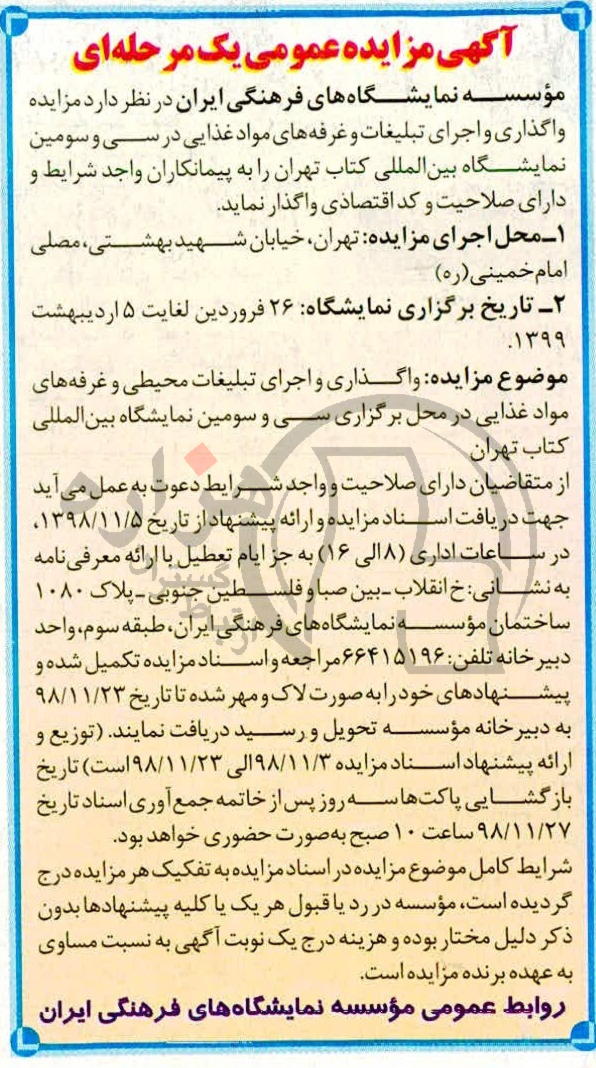 آگهی مزایده عمومی یک مرحله‌ای
مؤسسه نمایشگاه‌های فرهنگی ایران در نظر دارد مزایده
واگذاری و اجرای تبلیغات و غرفه‌های مواد غذایی در سی و سومین
نمایشگاه بین‌المللی کتاب تهران را به پیمانکاران واجد شرایط و
دارای صلاحیت و کد اقتصادی واگذار نماید.
۱ـ محل اجرای مزایده: تهران، خیابان شهید بهشتی، مصلی
امام خمینی(ره)
۲ـ تاریخ برگزاری نمایشگاه: ۲۶ فروردین لغایت ۵ اردیبهشت
۱۳۹۹.
موضوع مزایده: واگذاری و اجرای تبلیغات محیطی و غرفه‌های
مواد غذایی در محل برگزاری سی و سومین نمایشگاه بین‌المللی
کتاب تهران
از متقاضیان دارای صلاحیت و واجد شرایط دعوت به عمل می آید
جهت دریافت اسناد مزایده و ارائه پیشنهاد از تاریخ ۱۳۹۸/۱۱/۵،
در ساعات اداری (۸ الی ۱۶) به جز ایام تعطیل با ارائه معرفی‌نامه
به نشانی: خ انقلاب ـ بین صبا و فلسطین جنوبی ـ پلاک ۱۰۸۰
ساختمان مؤسسه نمایشگاه‌های فرهنگی ایران، طبقه سوم، واحد
دبیرخانه تلفن: ۶۶۴۱۵۱۹۶ مراجعه و اسناد مزایده تکمیل شده و
پیشنهادهای خود را به صورت لاک و مهر شده تا تاریخ ۹۸/۱۱/۲۳
به دبیرخانه مؤسسه تحویل و رسید دریافت نمایند. (توزیع و
ارائه پیشنهاد اسناد مزایده ۹۸/۱۱/۳ الی ۹۸/۱۱/۲۳ است) تاریخ
بازگشایی پاکت‌ها سه روز پس از خاتمه جمع‌آوری اسناد تاریخ
۹۸/۱۱/۲۷ ساعت ۱۰ صبح به‌صورت حضوری خواهد بود.
شرایط کامل موضوع مزایده در اسناد مزایده به تفکیک هر مزایده درج
گردیده است، مؤسسه در رد یا قبول هر یک یا کلیه پیشنهادها بدون
ذکر دلیل مختار بوده و هزینه درج یک نوبت آگهی به نسبت مساوی
به عهده برنده مزایده است.
روابط عمومی مؤسسه نمایشگاه‌های فرهنگی ایران
هزاره